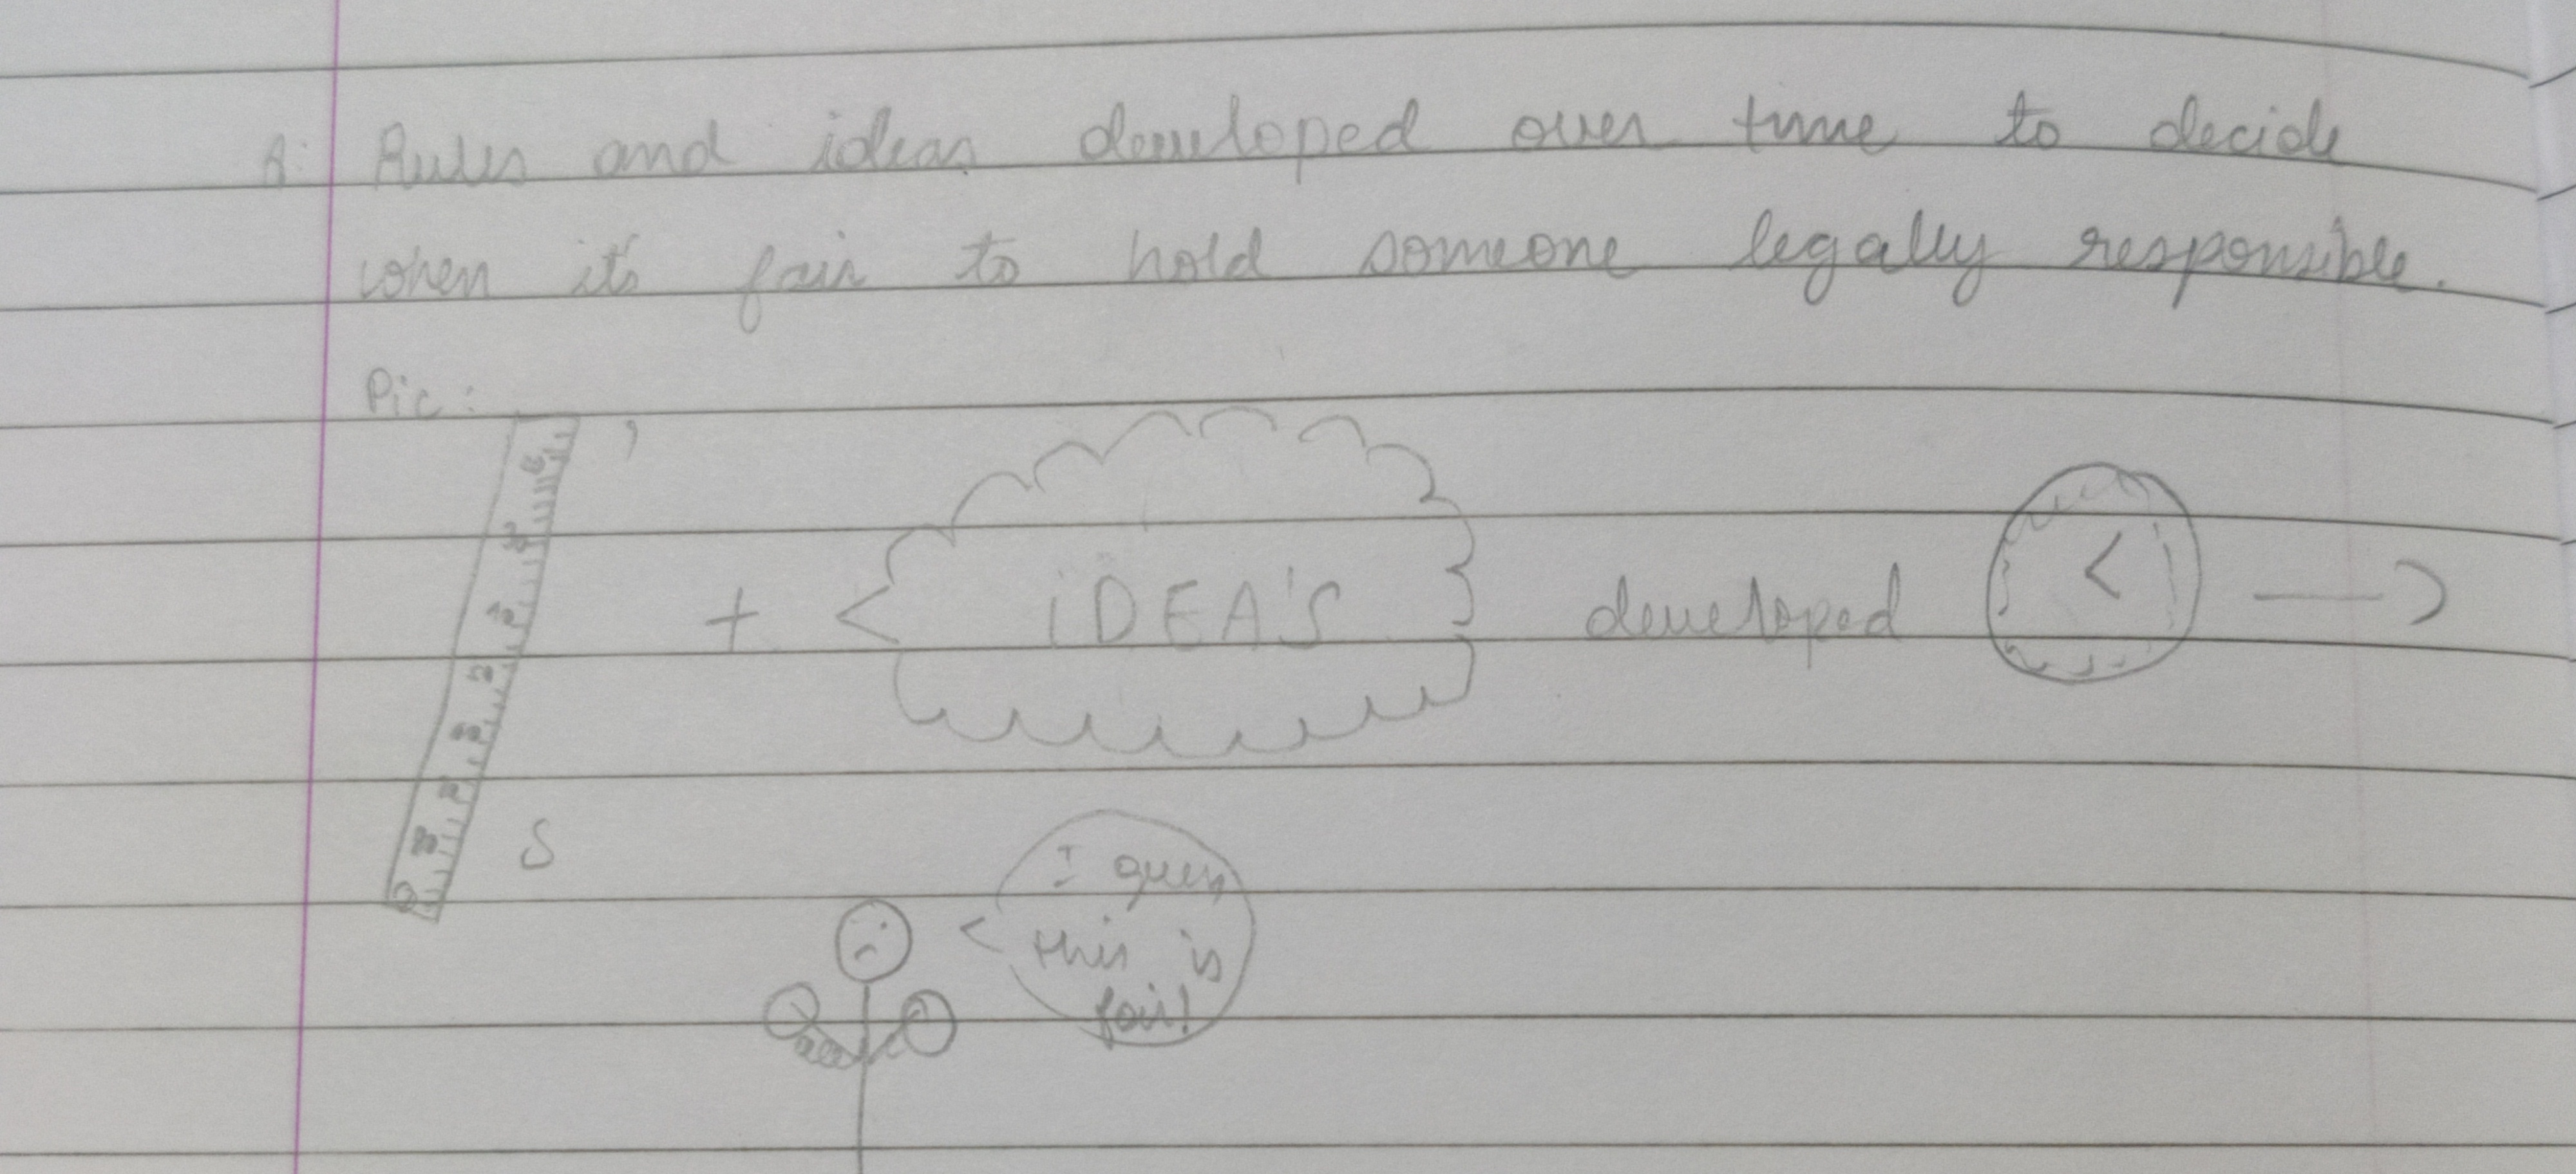 A: Rules and ideas developed over time to decide
when it's fair to hold someone legally responsible.
Pic:
+ < iDEA'S developed
S
I guess
this is
fair!